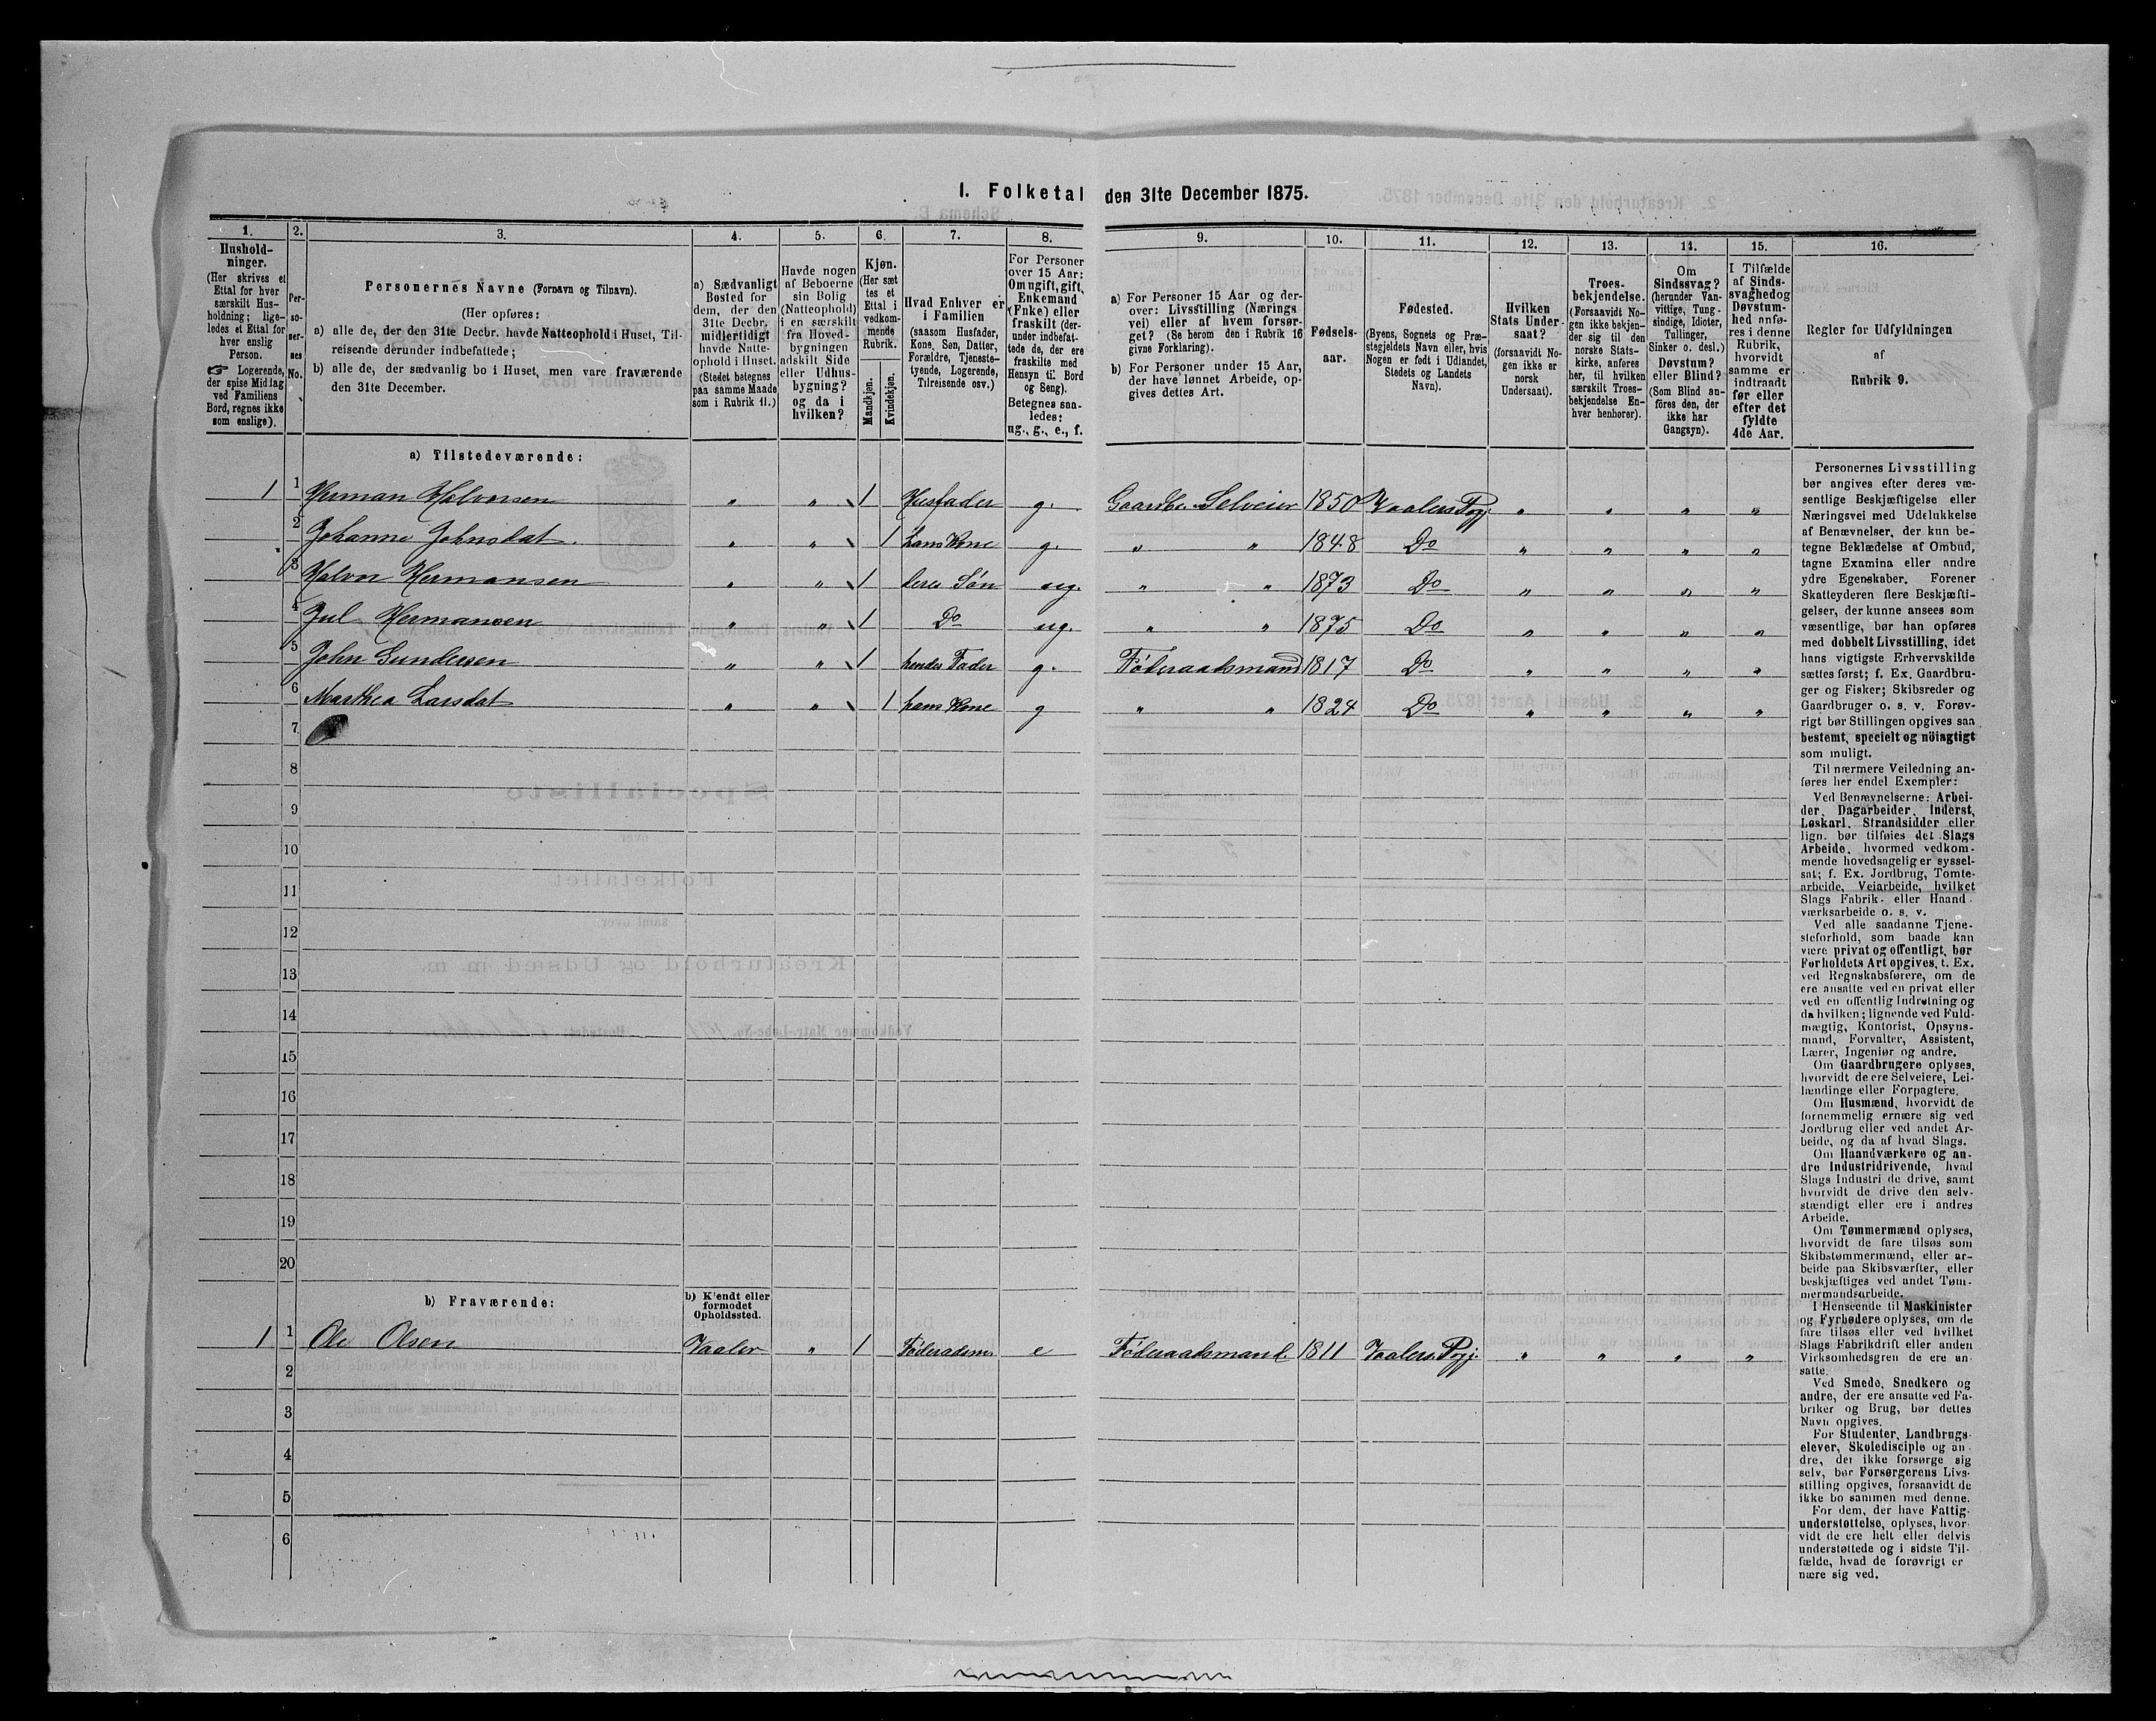 I. Folketal den 31te December 1875.
1. 2. 3. 4. 5. 6. 7. 8. 9. 10. 11. 12. 13. 14. 15. 16.
Hushold-
ninger.
(Her skrives et
Ettal for hver
særskilt Hus-
holdning; lige-
ledes et Ettal for
hver enslig
Person.
☞ Logerende,
der spise Middag
ved Familiens
Bord, regnes ikke
som enslige).
Per-
so-
ner-
nes
No.
Personernes Navne (Fornavn og Tilnavn).
(Her opføres:
a) alle de, der den 31te Decbr. havde Natteophold i Huset, Til-
reisende derunder indbefattede;
b) alle de, der sædvanlig bo i Huset, men vare fraværende
den 31te December.
a) Sædvanligt
Bosted for
dem, der den
31te Decbr.
midlertidigt
havde Natte-
ophold i Huset.
(Stedet betegnes
paa samme Maade
som i Rubrik 11.)
Havde nogen
af Beboerne
sin Bolig
(Natteophold)
i en særskilt
fra Hoved-
bygningen
adskilt Side
eller Udhus-
bygning?
og da i
hvilken?
Kjøn.
(Her sæt
tes et
Ettal i
vedkom-
mende
Rubrik.
Mandkjøn.
Kvindekjøn.
Hvad Enhver er
i Familien
(saasom Husfader,
Kone, Søn, Datter,
Forældre, Tjeneste-
tyende, Logerende,
Tilreisende osv.)
For Personer
over 15 Aar:
Om ugift, gift,
Enkemand
(Enke) eller
fraskilt (der-
under indbefat-
tede de, der ere
fraskilte med
Hensyn til Bord
og Seng).
Betegnes saa-
ledes:
ug., g., e., f.
a) For Personer 15 Aar og der-
over: Livsstilling (Nærings
vei) eller af hvem forsør-
get? (Se herom den i Rubrik 16
givne Forklaring).
b) For Personer under 15 Aar,
der have lønnet Arbeide, op-
gives dettes Art.
Fødsels-
aar.
Fødested.
(Byens, Sognets og Præ-
stegjeldets Navn eller, hvis
Nogen er født i Udlandet,
Stedets og Landets
Navn).
Hvilken
Stats Under-
saat?
(forsaavidt No-
gen ikke er
norsk
Undersaat).
Troes-
bekjendelse.
(Forsaavidt No-
gen ikke bekjen-
der sig til den
norske Stats-
kirke, anføres
her, til hvilken
særskilt Troes-
bekjendelse En-
hver henhører).
Om
Sindssvag?
(herunder Van-
vittige, Tung-
sindige, Idioter,
Tullinger,
Sinker o. desl.)
Døvstum?
eller Blind?
(Som Blind an-
føres den, der
ikke har
Gangsyn).
I Tilfælde
af Sinds-
svaghed og
Døvstum-
hed anfø-
res i denne
Rubrik,
hvorvidt
samme er
indtraadt
før eller
efter det
fyldte
4de Aar.
Regler for Udfyldningen
af
Rubrik 9.
a) Tilstedeværende:
1 1 Herman Halvorsen " " 1 Husfader g. Gaardbr. Selveier 1850 Vaalers Pgj. " " " "
2 Johanne Johnsdat. " " 1 hans Kone g. " " 1848 Do " " " "
3 Halvor Hermansen " " 1 deres Søn ug. " " 1873 Do " " " "
4 Jul Hermansen " " 1 Do ug. " " 1875 Do " " " "
5 John Gundersen " " 1 hendes Fader g. Føderaadsmand 1817 Do " " " "
6 Marthea Larsdat " " 1 hans Kone g " " 1824 Do " " " "
7
8
9
10
11
12
13
14
15
16
17
18
19
20
b) Fraværende:
b) Kjendt eller
formodet
Opholdssted.
1 1 Ole Olsen Vaaler " 1 Føderadsm. e Føderaadsmand. 1811 Vaalers Pgj. " " " "
2
3
4
5
6
Personernes Livsstilling
bør angives efter deres væ-
sentlige Beskjæftigelse eller
Næringsvei med Udelukkelse
af Benævnelser, der kun be-
tegne Beklædelse af Ombud,
tagne Examina eller andre
ydre Egenskaber. Forener
Skatteyderen flere Beskjæfti-
gelser, der kunne ansees som
væsentlige, bør han opføres
med dobbelt Livsstilling, idet
hans vigtigste Erhvervskilde
sættes først; f. Ex. Gaardbru-
ger og Fisker; Skibsreder og
Gaardbruger o. s. v. Forøv-
rigt bør Stillingen opgives saa
bestemt, specielt og nöiagtigt
som muligt.
Til nærmere Veiledning an-
føres her endel Exempler:
Ved Benævnelserne: Arbei-
der, Dagarbeider, Inderst,
Løskarl, Strandsidder eller
lign. bør tilføies det Slags
Arbeide, hvormed vedkom-
mende hovedsagelig er syssel-
sat; f. Ex. Jordbrug, Tomte-
arbeide, Veiarbeide, hvilket
Slags Fabrik- eller Haand-
værksarbeide o. s. v.
Ved alle saadanne Tjene-
steforhold, som baade kan
være privat og offentligt, bør
Forholdets Art opgives, t. Ex.
ved Regnskabsførere, om de
ere ansatte ved en privat eller
ved en offentlig Indretning og
da hvilken; lignende ved Fuld-
mægtig, Kontorist, Opsyns-
mand, Forvalter, Assistent,
Lærer, Ingeniør og andre.
Om Gaardbrugere oplyses,
hvorvidt de ere Selveiere, Lei-
lændinge eller Forpagtere.
Om Husmænd, hvorvidt de
fornemmelig ernære sig ved
Jordbrug eller ved andet Ar-
beide, og da af hvad Slags.
Om Haandværkere og an-
dre Industridrivende, hvad
Slags Industri de drive, samt
hvorvidt de drive den selv-
stændigt eller ere i andres
Arbeide.
Om Tømmermænd oplyses,
hvorvidt de fare tilsøs som
Skibstømmermænd, eller ar-
beide paa Skibsværfter, eller
beskjæftiges ved andet Tøm-
mermandsarbeide.
I Henseende til Maskinister
og Fyrbødere oplyses, om de
fare tilsøs eller ved hvilket
Slags Fabrikdrift eller anden
Virksomhedsgren de ere an-
satte.
Ved Smede, Snedkere og
andre, der ere ansatte ved Fa-
briker og Brug, bør dettes
Navn opgives.
For Studenter, Landbrugs-
elever, Skoledisciple og an-
dre, der ikke forsørge sig
selv, bør Forsørgerens Livs-
stilling opgives, forsaavidt de
ikke bo sammen med denne.
For dem, der have Fattig-
understøttelse, oplyses, hvor-
vidt de ere helt eller delvis
understøttede og i sidste Til-
fælde, hvad de forøvrigt er
nære sig ved.